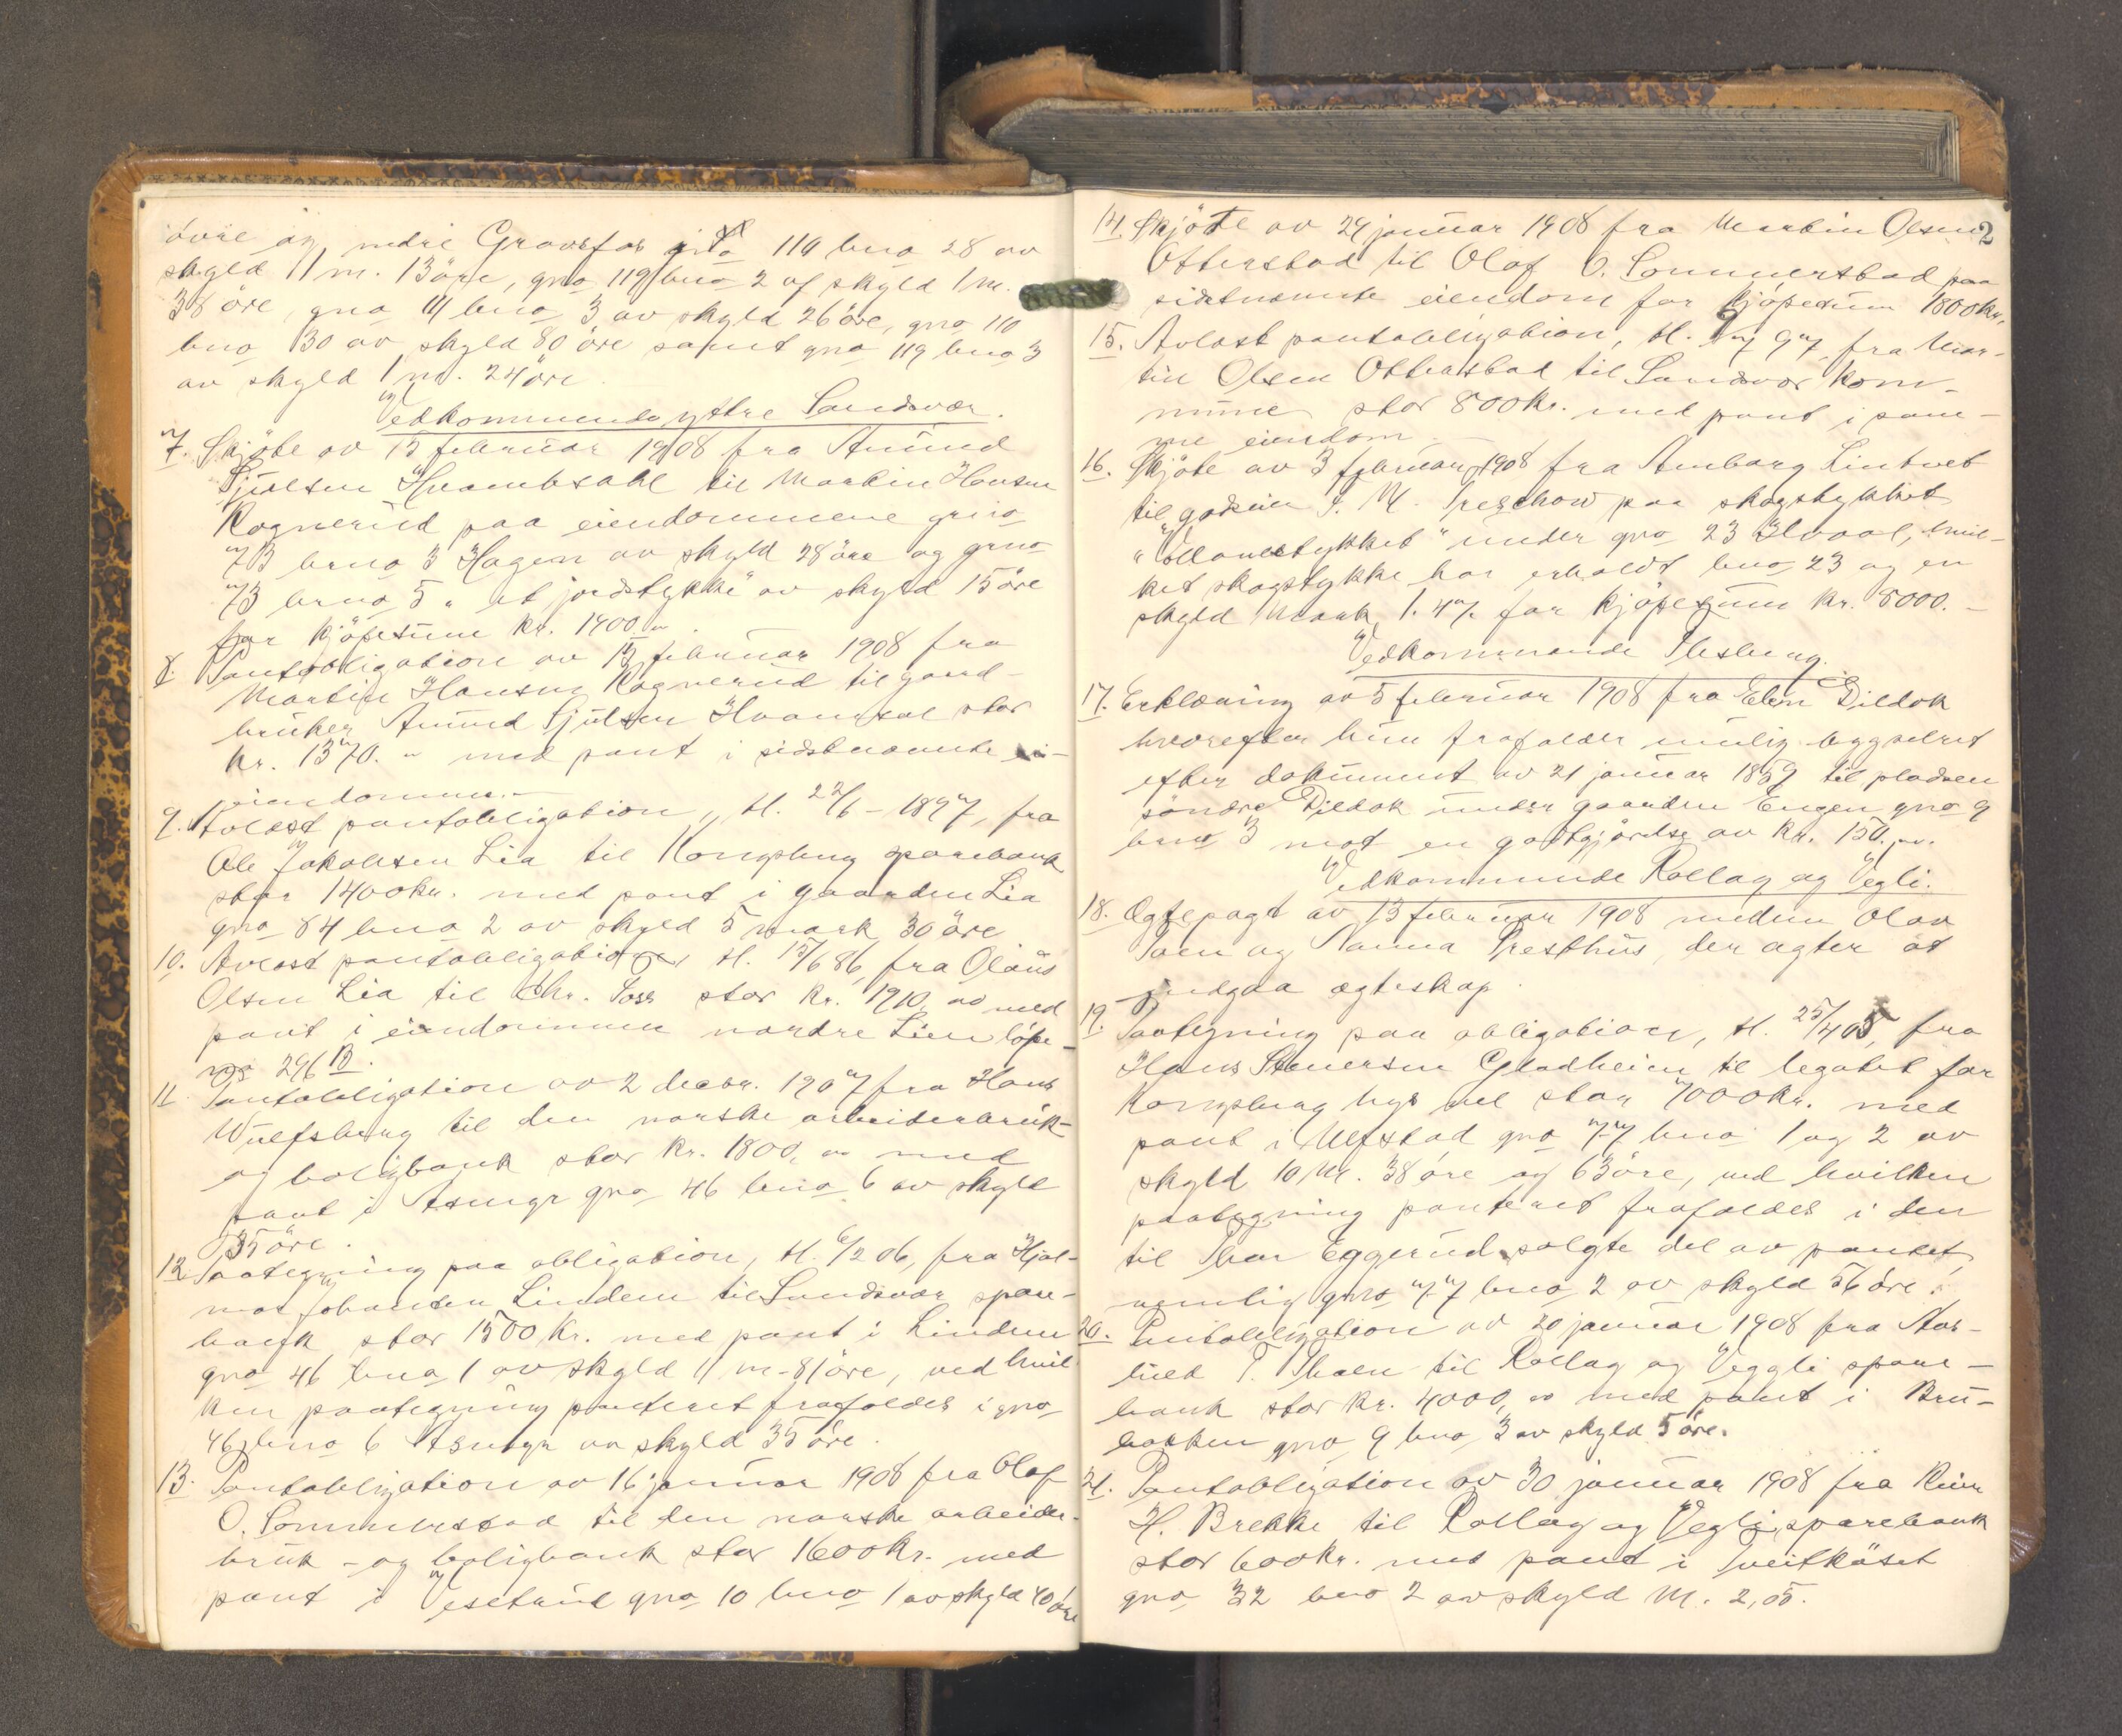 övre og nedre Gravfos gno 119 bno 28 av
skyld 1 m. 13 öre, gno 119 bno 2 af skyld 1 m.
38 öre, gno 111 bno 3 av skyld 26 öre, gno 110
bno 30 av skyld 80 öre samt gno 119 bno 3
av skyld 1 m. 24 öre
Vedkommende yttre Sandsvær.
7. Skjöte av 15 februar 1908 fra Amund
Hvambsahl til Martin Hansen
Rognerud paa eiendommene gno
73 bruno 3 Hagen av skyld 28 öre og gno
73 bruno 5 "et jordstykke" av skyld 15 öre
for kjöpesum kr. 1400 "
8. Pantobligation av 15 februar 1908 fra
Martin Hansen Rognerud til gaard-
bruker Amund Hvamsal stor
kr. 1370. " med pant i sidstnævnte ei-
eiendomme.-
9. Avlöst pantobligation, tl. 22/6-1897, fra
Ole Jakobsen Lia til Kongsberg sparebank
stor 1400 kr. med pant i gaarden Lia
gno 84 bno 2 av skyld 5 mark 30 öre
10. Avlöst pantobligation tl. 15/6 86, fra Olaus
Olsen Lia til Chr. Foss stor kr. 1910, " med
pant i eiendommen nordre Lien löpe-
no 296 B.
11. Pantobligation av 2 decbr. 1907 fra Hans
Wulfsberg til den norske arbeiderbruk-
og boligbank stor kr. 1800, " med
pant i gno 46 bno 6 av skyld
35 öre.
12. Paategning paa obligation, tl. 6/2 06, fra Hjal-
mar Johansen Linden til Sandsvær spare-
bank stor 1500 kr. med pant i Linden
gno 46 bno 1 av skyld 1 m - 81 öre, ved hvil-
ken paategning panteret frafaldes i gno
46 bno 6 av skyld 35 öre.
13. Pantobligation av 16 januar 1908 fra Olaf
O. Sommerstad til den norske arbeider-
bruk - og boligbank stor 1600 kr. med
pant i Vesetrud gno 10 bno 1 av skyld 40 öre
2
14. Skjöte av 24 januar 1908 fra Martin Olsen
Otterstad til Olaf O. Sommerstad paa
sidstnævnte eiendom for kjöpesum 1800 kr.
15. Avlöst pantobligation, tl. 97, fra Mar-
tin Olsen Otterstad til Sandsvær kom-
mune stor 800 kr. med pant i sam-
me eiendom.
16. Skjöte av 3 februar 1908 fra Anborg Lintvet
til godseier F. M. Treschow paa skogstykket
" " under gno 23 Hvaal, hvil-
ket skogstykke har erholdt bno 23 og en
skyld Mark 1.47. for kjöpesum kr. 8000.-
Vedkommende Flesberg.
17. Erklæring av 5 februar 1908 fra Elen Dildok
hvorefter hun frafalder mulig bygselret
efter dokument av 21 januar 1859 til pladsen
söndre Dildok under gaarden Engen gno 9
bno 3 mot en godtgjörelse av kr. 150. "
Vedkommende Rollag og Vegli.
18. Ægtepagt av 13 februar 1908 mellem Olav
Toen og Nanna Presthus, der agter at
indgaa ægteskap.
19. Paategning paa obligation, tl. 25/4 05, fra
Hans Stenersen Gladheim til legatet for
Kongsberg bys vel stor 7000 kr. med
pant i Ulfstad gno 77 bno 1 og 2 av
skyld 10 M. 38 öre og 63 öre, ved hvilken
paategning panteret frafaldes i den
til Thor Eggerud solgte del av pantet,
nemlig gno 77 bno 2 av skyld 56 öre.
20. Pantobligation av 20 januar 1908 fra
T. Thoen til Rollag og Veggli spare-
bank stor kr. 4000, " med pant i Bru-
bakken gno 9 bno 3 av skyld 5 öre.
21. Pantobligation av 30 januar 1908 fra
H. Brekke til Rollag og Vegli sparebank
stor 600 kr. med pant i
gno 32 bno 2 av skyld M. 2,05.